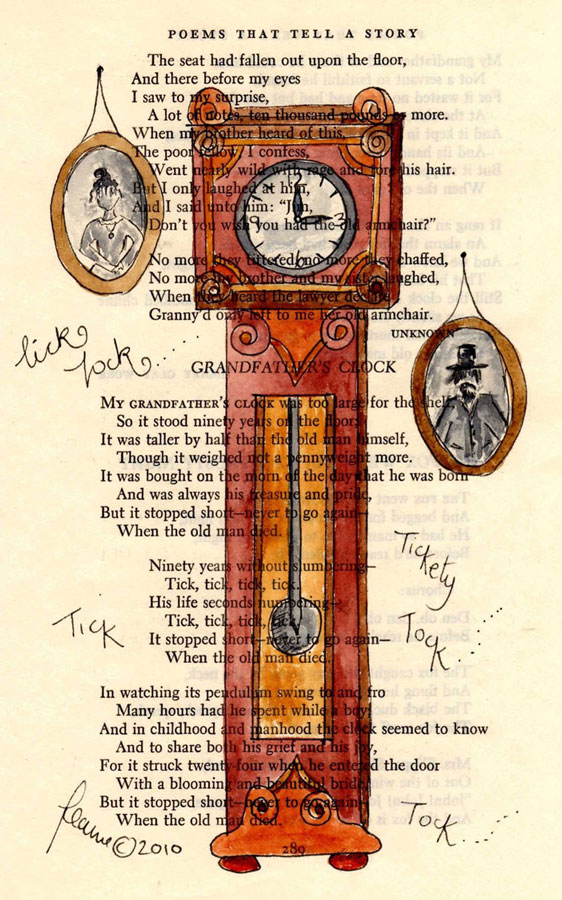 POEMS THAT TELL A STORY
The seat had fallen out upon the floor,
And there before my eyes
I saw to my surprise,
A lot of notes, ten thousand pounds or more.
When my brother heard of this,
The poor fellow, I confess,
Went nearly wild with rage and tore his hair.
But I only laughed at him,
And I said unto him: “Jim,
Don't you wish you had the old armchair?”
No more they tittered, no more they chaffed,
No more my brother and my sister laughed,
When they heard the lawyer declare
Granny'd only left to me her old armchair.
UNKNOWN
12
3
6
9
tick
tock.....
GRANDFATHER'S CLOCK
MY GRANDFATHER'S CLOCK was too large for the shelf,
So it stood ninety years on the floor;
It was taller by half than the old man himself,
Though it weighed not a pennyweight more.
It was bought on the morn of the day that he was born
And was always his treasure and pride,
But it stopped short—never to go again—
When the old man died.
Ninety years without slumbering—
Tick, tick, tick, tick.
His life seconds numbering—
Tick, tick, tick, tick.
It stopped short—never to go again—
When the old man died.
Tickety
Tock.....
Tick
In watching its pendulum swing to and fro
Many hours had he spent while a boy;
And in childhood and manhood the clock seemed to know
And to share both his grief and his joy,
For it struck twenty-four when he entered the door
With a blooming and beautiful bride,
But it stopped short—never to go again—
When the old man died.
Tock.....
©2010
289